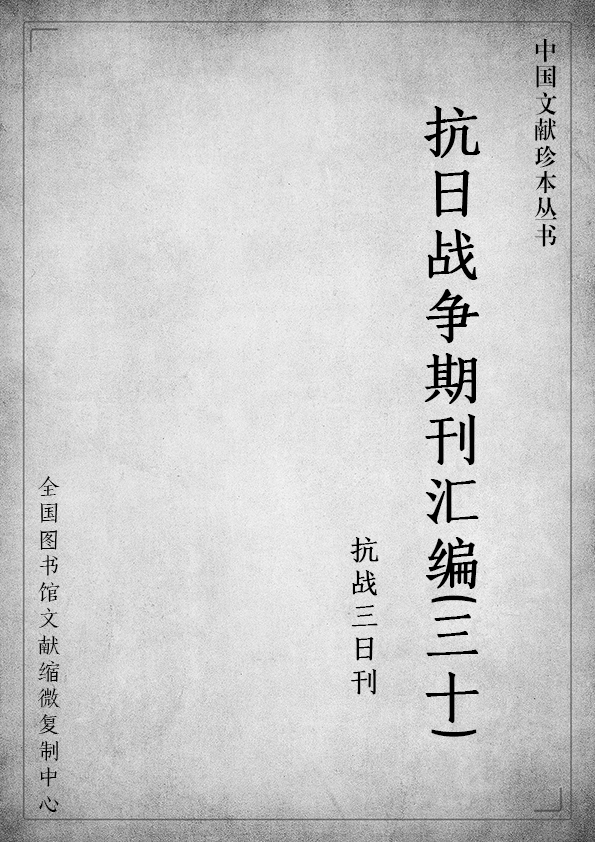 中国文献珍本丛书
抗日战争期刊汇编(三十)
抗战三日刊
全国图书馆文献缩微复制中心